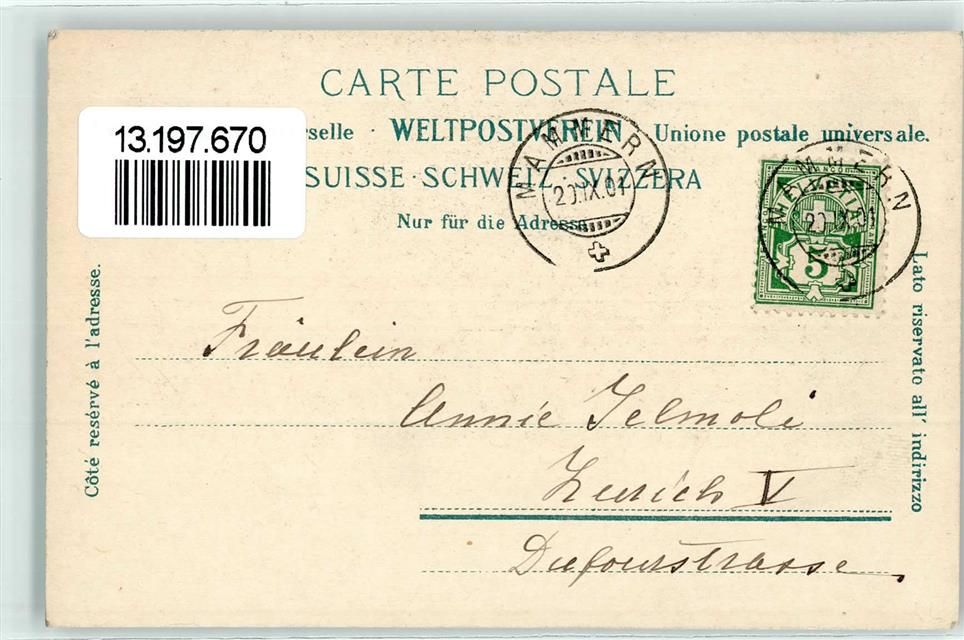 CARTE POSTALE
13.197.670
rselle · WELTPOSTVEREIN · Unione postale universale.
SUISSE · SCHWEIZ · SVIZZERA
Nur für die Adresse
MAMMERN
20.IX.01
MAMMERN
HELVETIA
5
Côté resérvé à l'adresse.
Lato riservato all' indirizzo
Fräulein
Annie Jelmoli
Zurich V
Dufourstrasse.